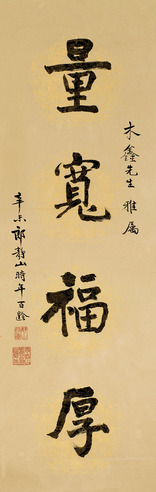 木鑫先生 雅属
量寬福厚
辛未 郎靜山時年百齡